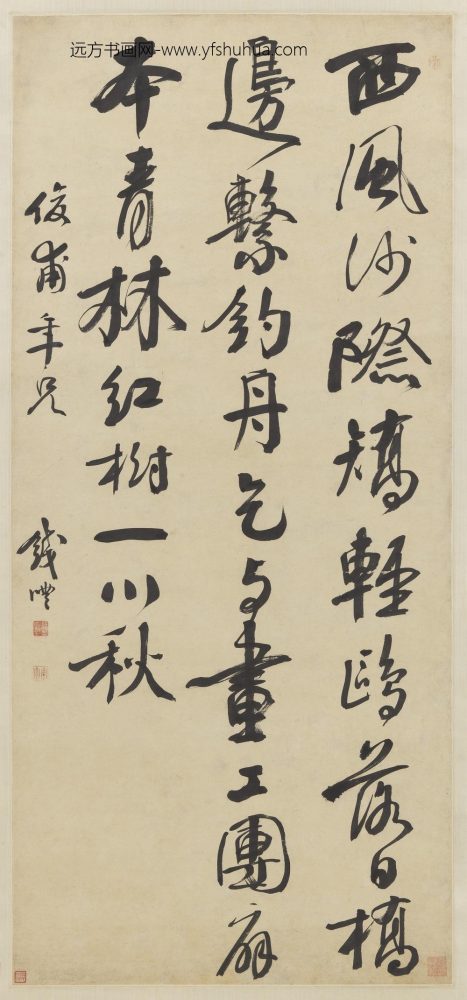 远方书画网-www.yfshuhua.com
西風沙際矯輕鷗落日橋
邊繫釣舟乞与畫工團扇
本青林紅樹一川秋
俊甫年兄
錢灃